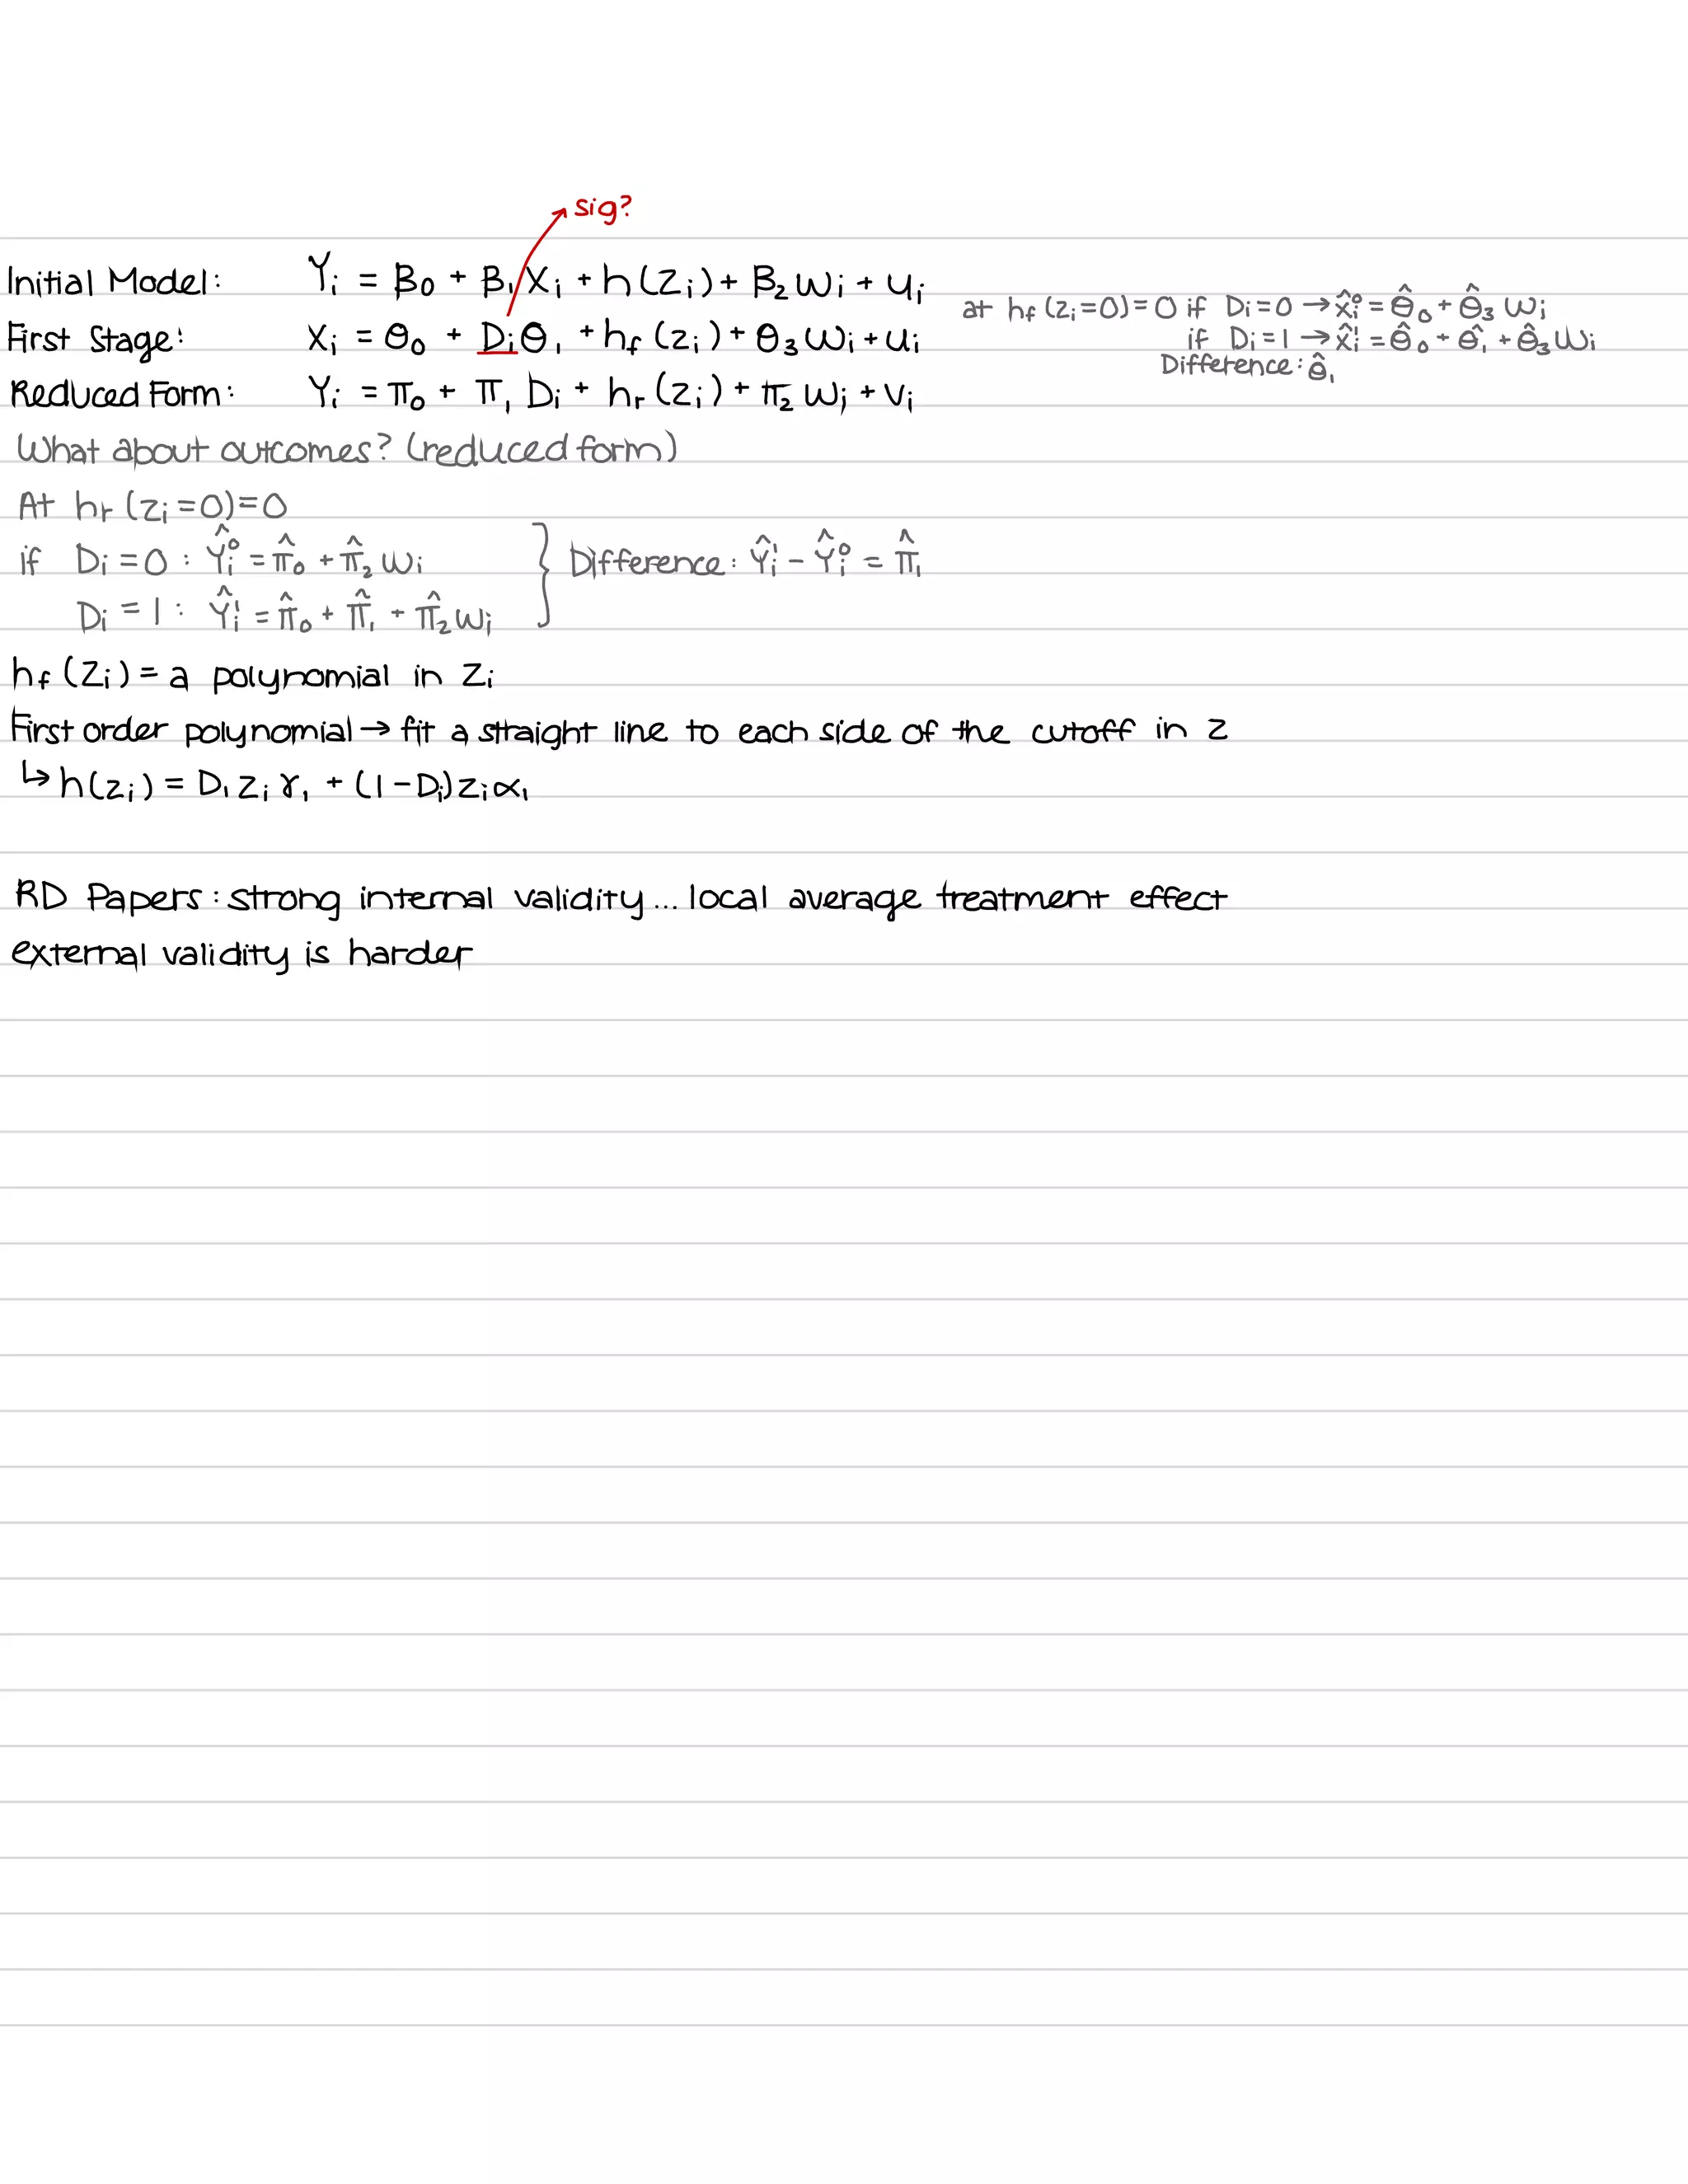 sig?
Initial Model: Yᵢ = B₀ + B₁Xᵢ + h(Zᵢ) + B₂Wᵢ + uᵢ
First Stage: Xᵢ = θ₀ + Dᵢθ₁ + h_f(zᵢ) + θ₃Wᵢ + uᵢ
at h_f(zᵢ=0)=0 if Dᵢ=0 → x̂ᵢ⁰ = θ̂₀ + θ̂₃Wᵢ
if Dᵢ=1 → x̂ᵢ¹ = θ̂₀ + θ̂₁ + θ̂₃Wᵢ
Difference: θ̂₁
Reduced Form: Yᵢ = π₀ + π₁Dᵢ + hᵣ(zᵢ) + π₂Wᵢ + vᵢ
What about outcomes? (reduced form)
At hᵣ(zᵢ=0)=0
if Dᵢ=0 : Ŷᵢ⁰ = π̂₀ + π̂₂Wᵢ
Dᵢ=1 : Ŷᵢ¹ = π̂₀ + π̂₁ + π̂₂Wᵢ
} Difference: Ŷᵢ¹ - Ŷᵢ⁰ = π̂₁
h_f(Zᵢ) = a polynomial in Zᵢ
First order polynomial → fit a straight line to each side of the cutoff in z
↳ h(zᵢ) = Dᵢzᵢγ₁ + (1-Dᵢ)zᵢα₁
RD Papers: strong internal validity... local average treatment effect
external validity is harder